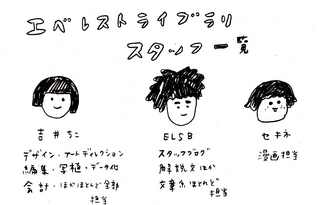 エベレストライブラリ
スタッフ一覧
吉井ちこ
デザイン・アートディレクション
編集・写植・データ化
会計・ほかほとんど全部
担当
ELSB
スタッフブログ
解説文ほか
文章系ほとんど
担当
セキネ
漫画担当